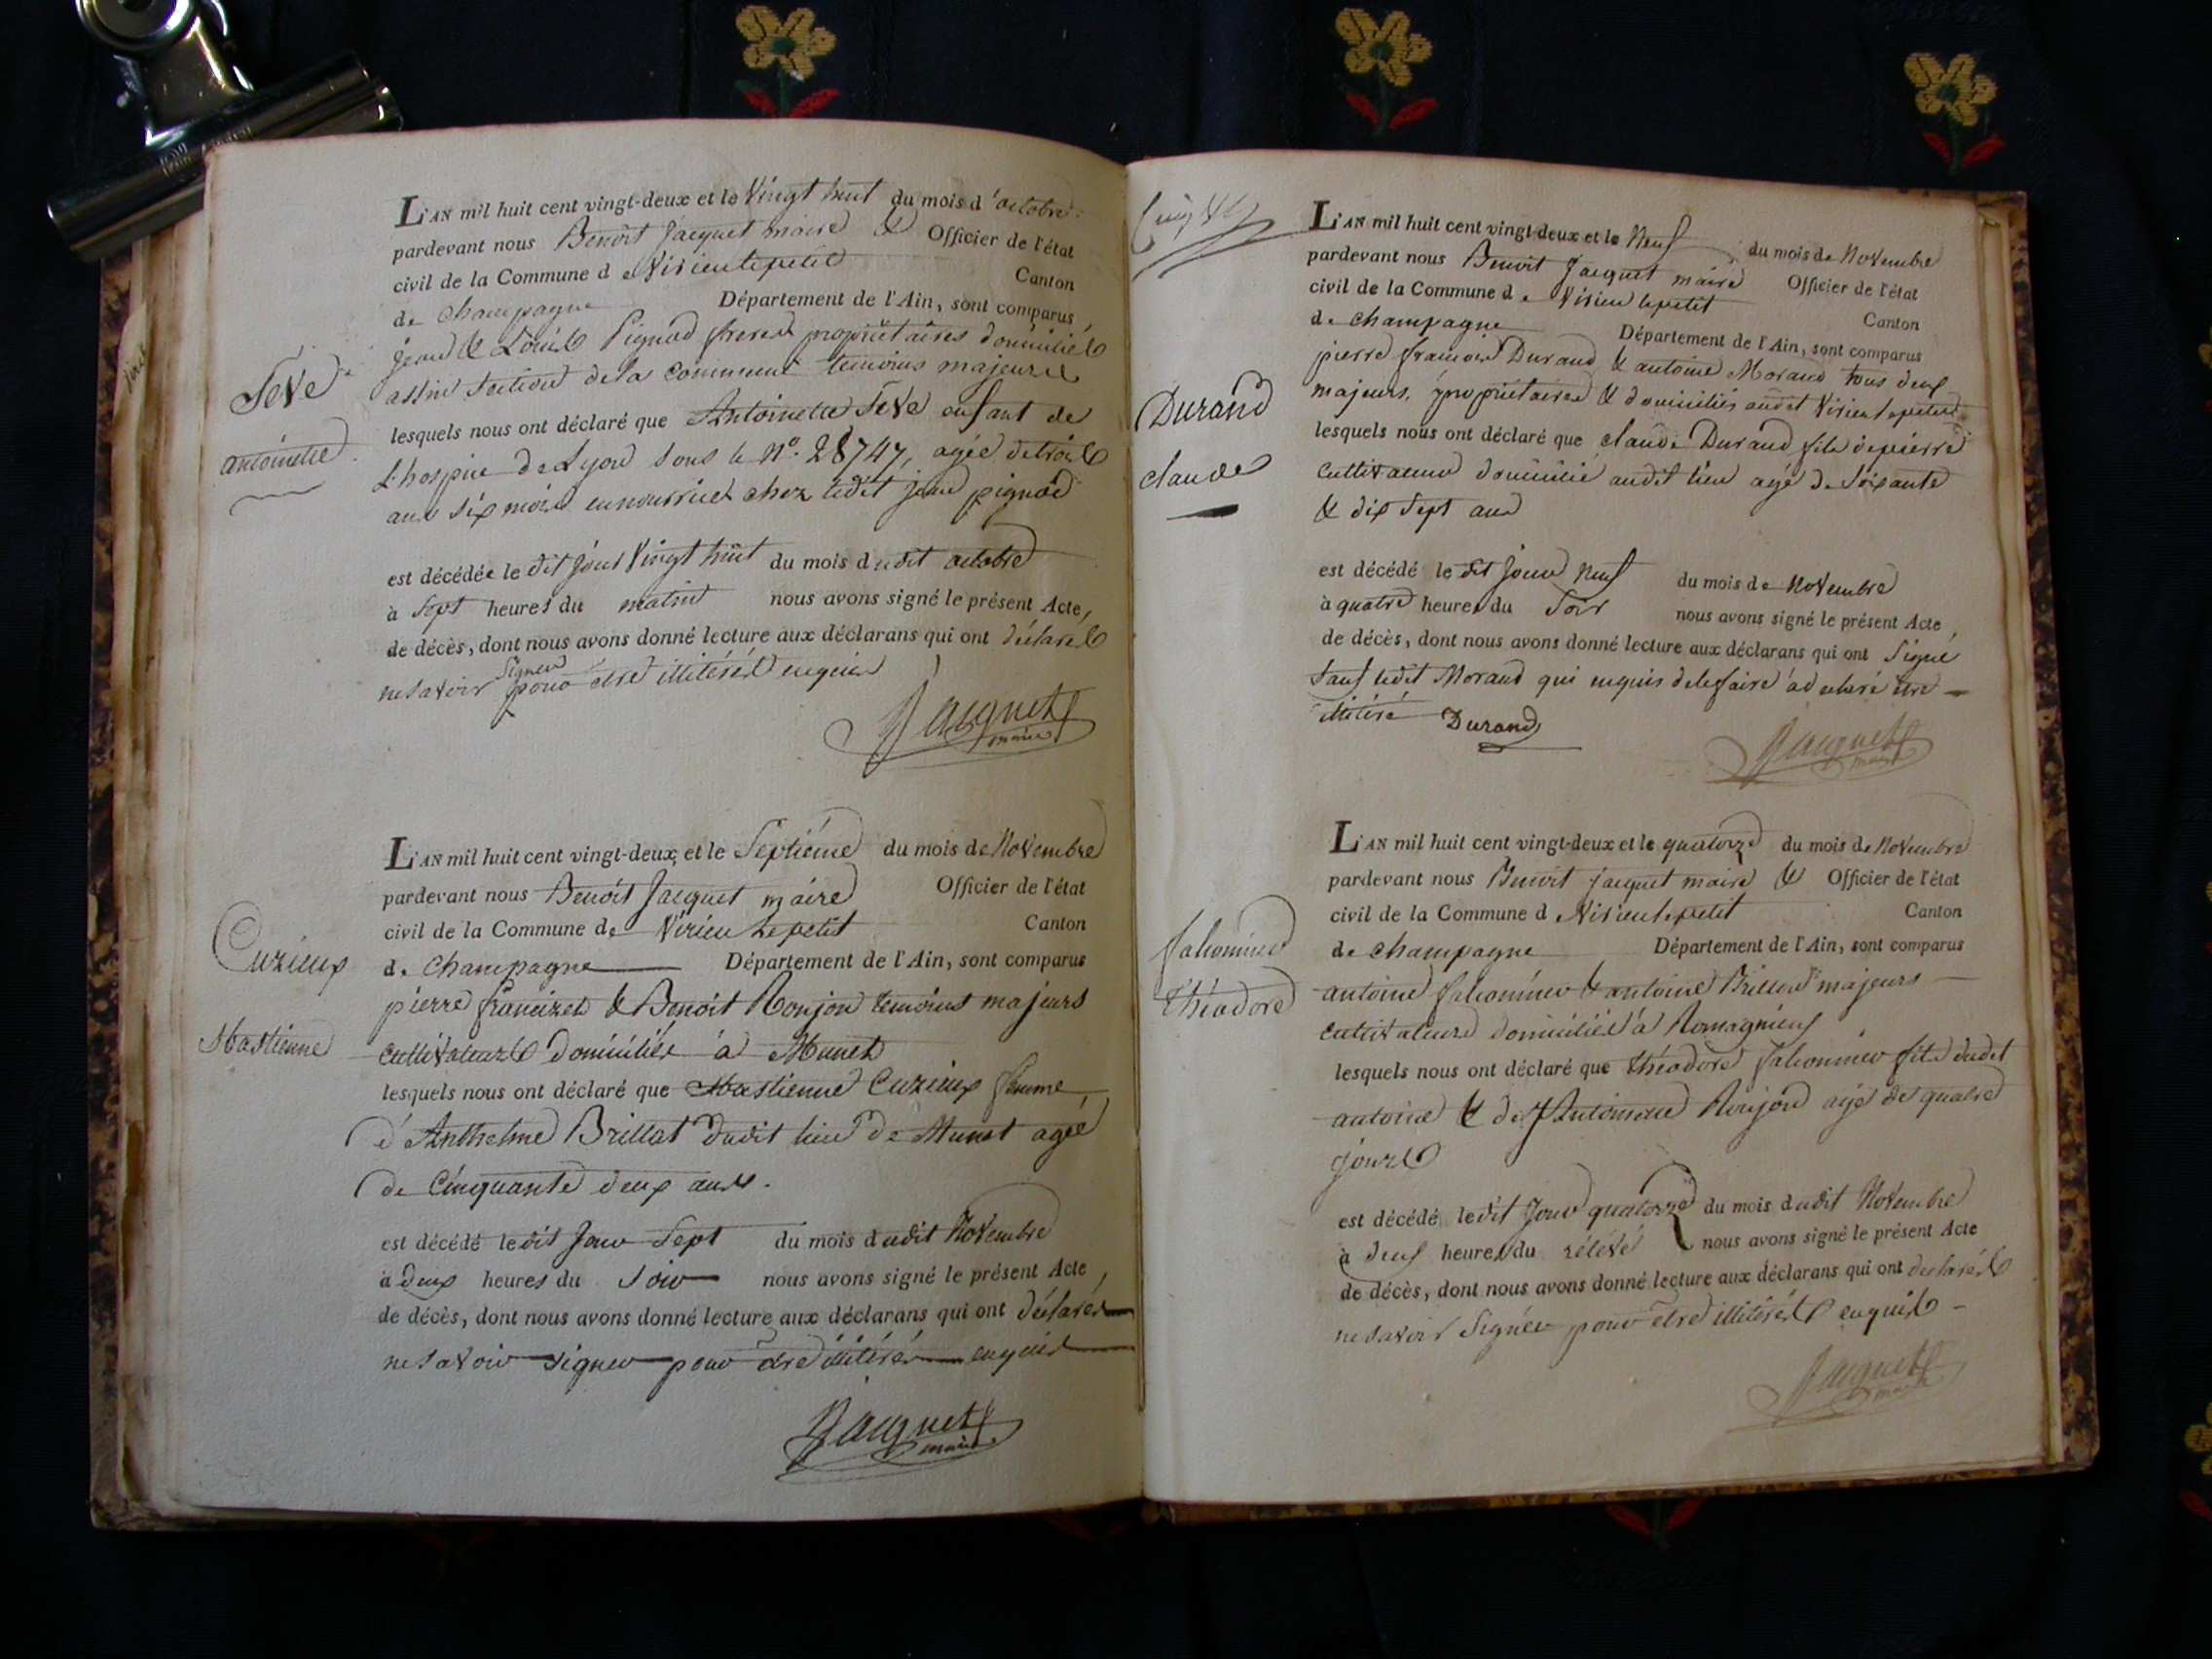 L'AN mil huit cent vingt-deux et le Vingt huit du mois d'octobre
pardevant nous Benoit Jacquet maire & Officier de l'état
civil de la Commune de Virieu lepetit Canton
de Champagne Département de l'Ain, sont comparus,
jean & Louis Pignod freres propriétaires domiciliés
assin Section dela Commune temoins majeurs
lesquels nous ont déclaré que Antoinette Seve enfant de
L'hospice de Lyon sous le N.º 28747, agée detrois
ans six mois ennourrice chez ledit jean pignod
est décédée le dit jour Vingt huit du mois dudit octobre
à Sept heures du matin nous avons signé le présent Acte,
de décès, dont nous avons donné lecture aux déclarans qui ont déclarés
nesavoir signer pour etre illitérés enquis
Jacquet
maire
Seve
antoinette
L'AN mil huit cent vingt-deux et le Septiéme du mois de Novembre
pardevant nous Benoit Jacquet maire Officier de l'état
civil de la Commune de Virieu Lepetit Canton
de Champagne Département de l'Ain, sont comparus
pierre francizet & Benoit Roujon temoins majeurs
cultivateurs domiciliés à Munet
lesquels nous ont déclaré que Mastienne Cuzieux femme
d'Anthelme Brillat dudit lieu de Munet agée
de Cinquante deux ans.
est décédé ledit jour Sept du mois dudit Novembre
à deux heures du soir nous avons signé le présent Acte,
de décès, dont nous avons donné lecture aux déclarans qui ont déclarés
nesavoir signer pour etre illitérés enquis
Jacquet
maire
Cuzieux
Mastienne
L'AN mil huit cent vingt-deux et le Neuf du mois de Novembre
pardevant nous Benoit Jacquet maire Officier de l'état
civil de la Commune de Virieu lepetit Canton
de Champagne Département de l'Ain, sont comparus
pierre françois Durand & antoine Morand tous deux
majeurs, propriétaires & domiciliés audit Virieu lepetit
lesquels nous ont déclaré que claude Durand fils depierre
Cultivateur domicilié audit lieu agé de Soixante
& dix Sept ans
est décédé le dit jour Neuf du mois de Novembre
à quatre heures du Soir nous avons signé le présent Acte,
de décès, dont nous avons donné lecture aux déclarans qui ont Signé
Sauf ledit Morand qui enquis delefaire a déclaré être
illitéré Durand
Jacquet
maire
Durand
claude
L'AN mil huit cent vingt-deux et le quatorze du mois de Novembre
pardevant nous Benoit jacquet maire & Officier de l'état
civil de la Commune d Virieu lepetit Canton
de Champagne Département de l'Ain, sont comparus
antoine falconnier & antoine Brillat majeurs
cultivateurs domiciliés à Romagnieu
lesquels nous ont déclaré que théodore falconnier fils dudit
antoine & de Roujon agé de quatre
jours
est décédé ledit jour quatorze du mois dudit Novembre
à deux heures du relevé nous avons signé le présent Acte
de décès, dont nous avons donné lecture aux déclarans qui ont declarés
nesavoir Signer pour etre illitérés enquis
Jacquet
maire
falconnier
théodore